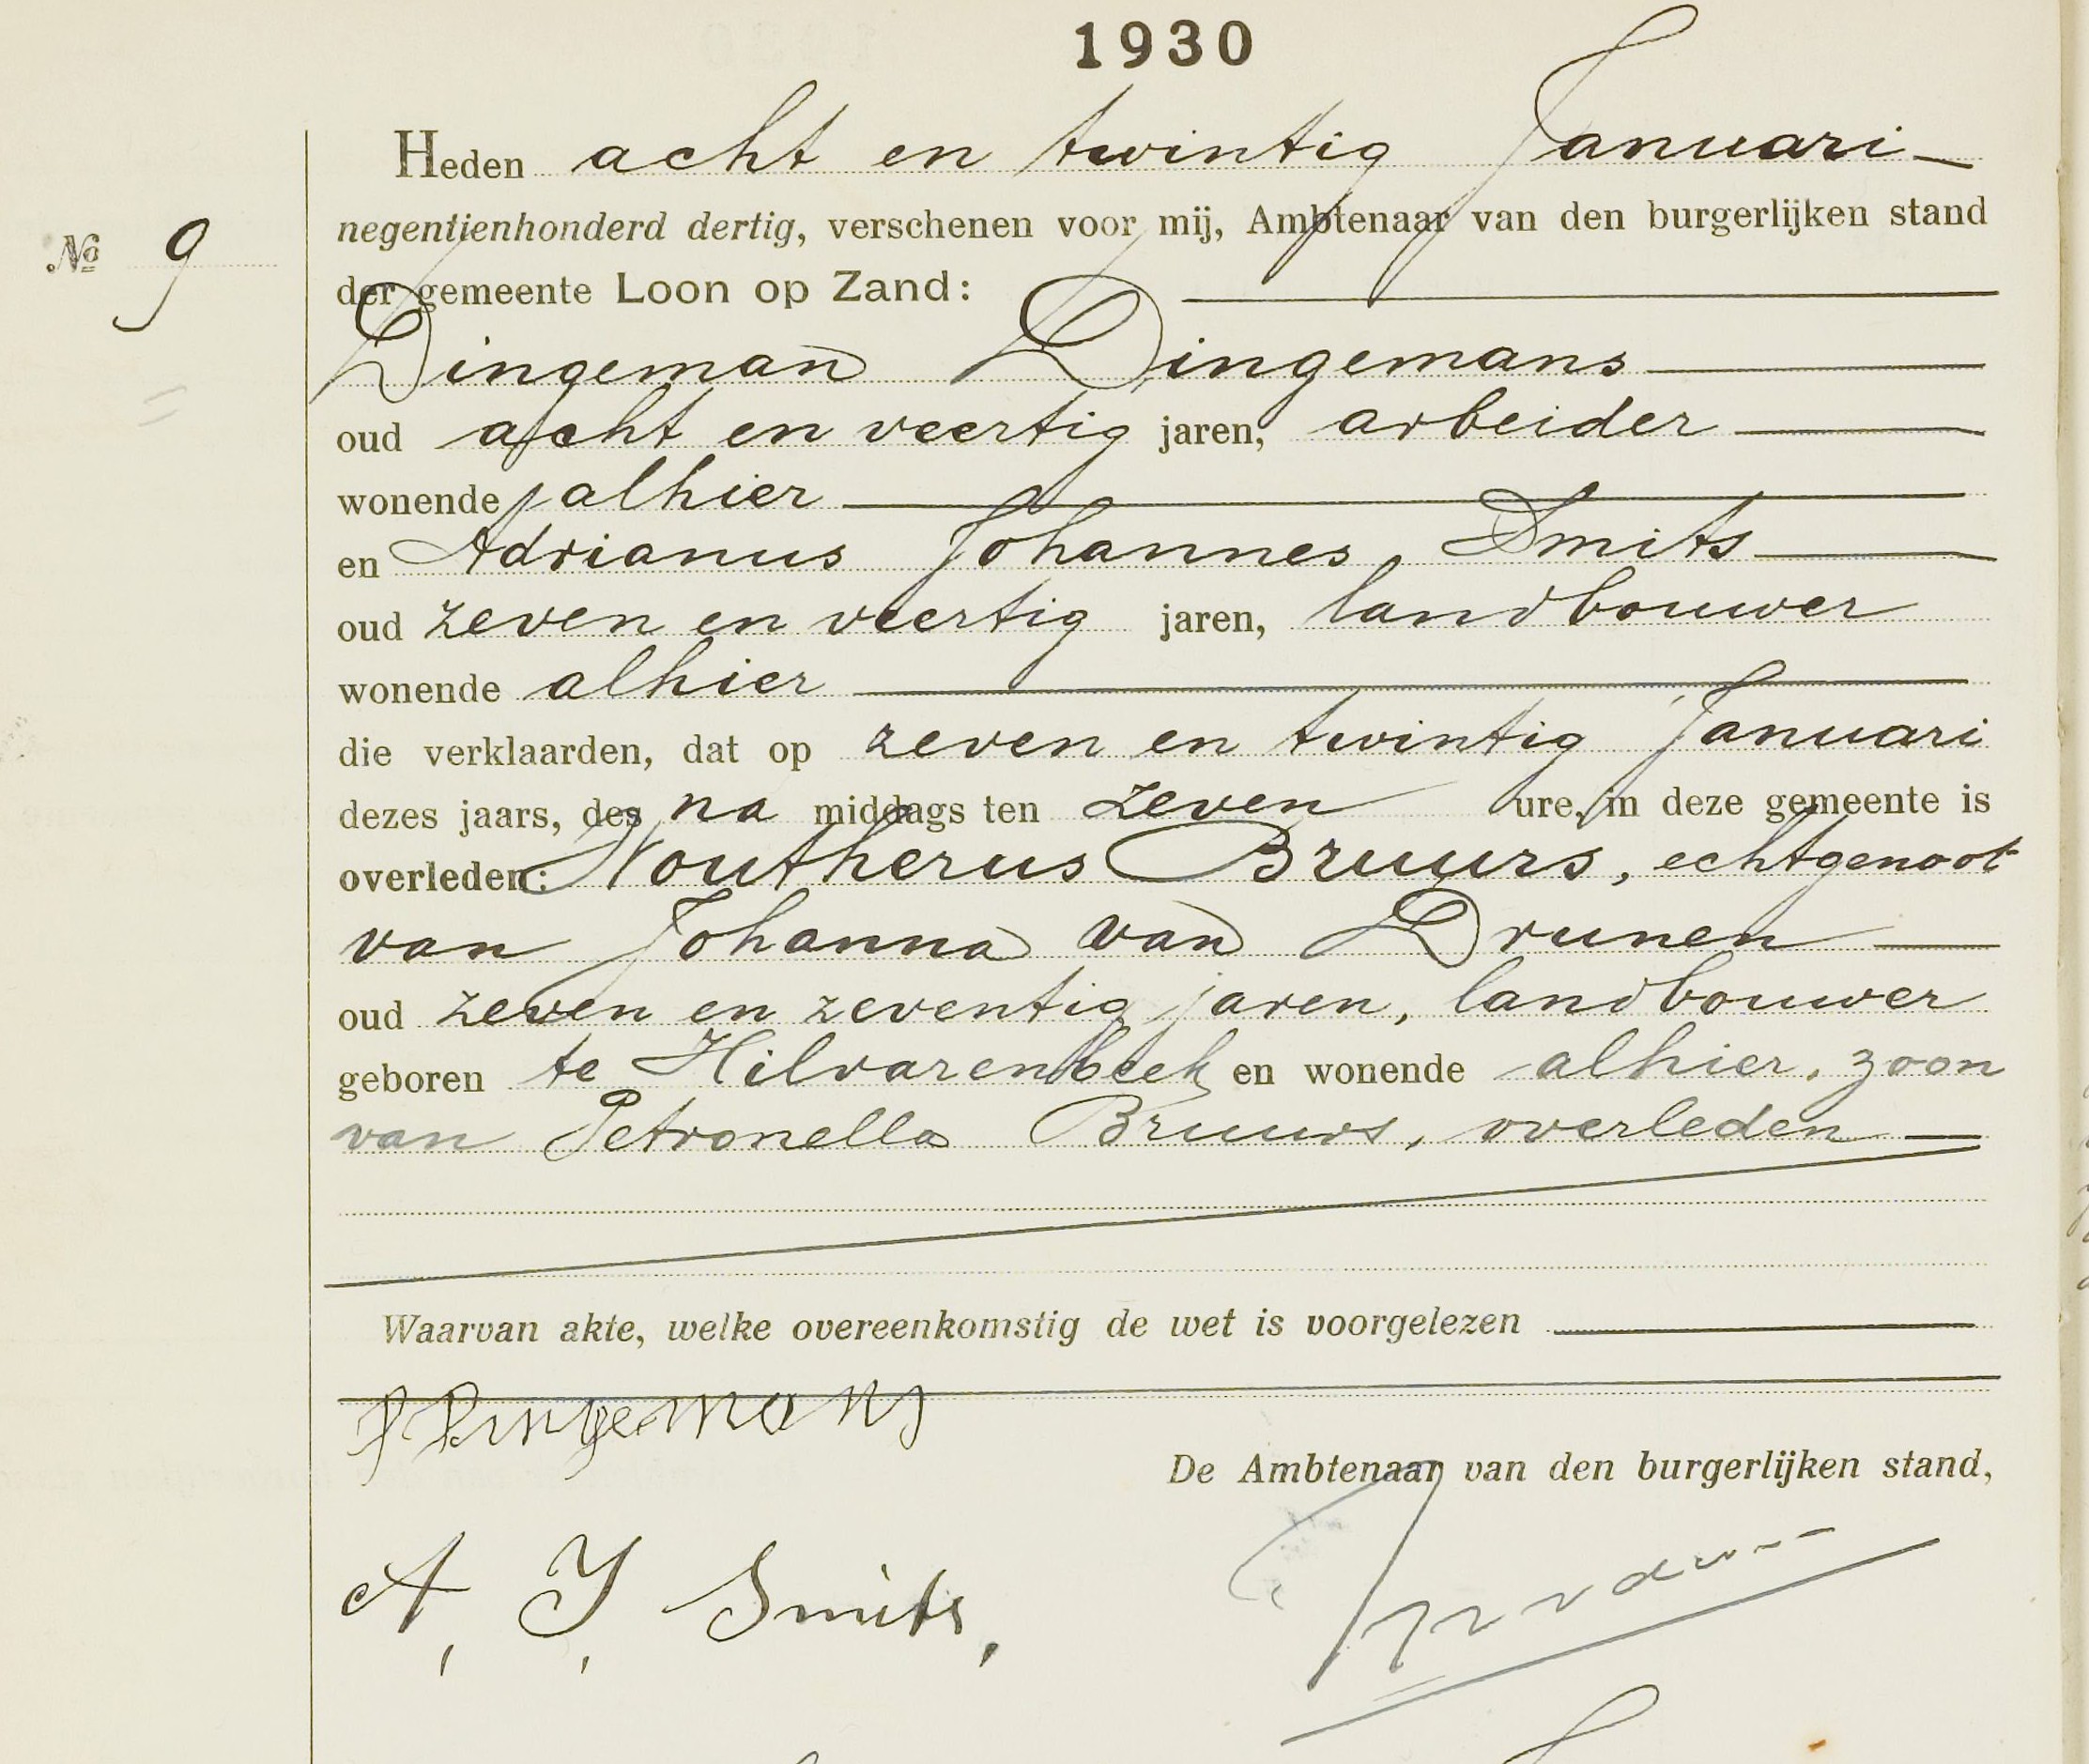 1930
Heden acht en twintig Januari
negentienhonderd dertig, verschenen voor mij, Ambtenaar van den burgerlijken stand
№ 9
der gemeente Loon op Zand:
Dingeman Dingemans
oud acht en veertig jaren, arbeider
wonende alhier
en Adrianus Johannes Smits
oud zeven en veertig jaren, landbouwer
wonende alhier
die verklaarden, dat op zeven en twintig Januari
dezes jaars, des na middags ten zeven ure, in deze gemeente is
overleden: Woutherus Bruurs, echtgenoot
van Johanna van Drunen
oud zeven en zeventig jaren, landbouwer
geboren te Hilvarenbeek en wonende alhier, zoon
van Petronella Bruurs, overleden
Waarvan akte, welke overeenkomstig de wet is voorgelezen
D Dingemans
De Ambtenaar van den burgerlijken stand,
A, J, Smits,